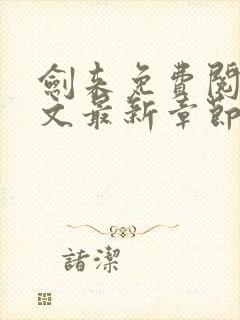 劍來免費閱
文最新章節
諸潔